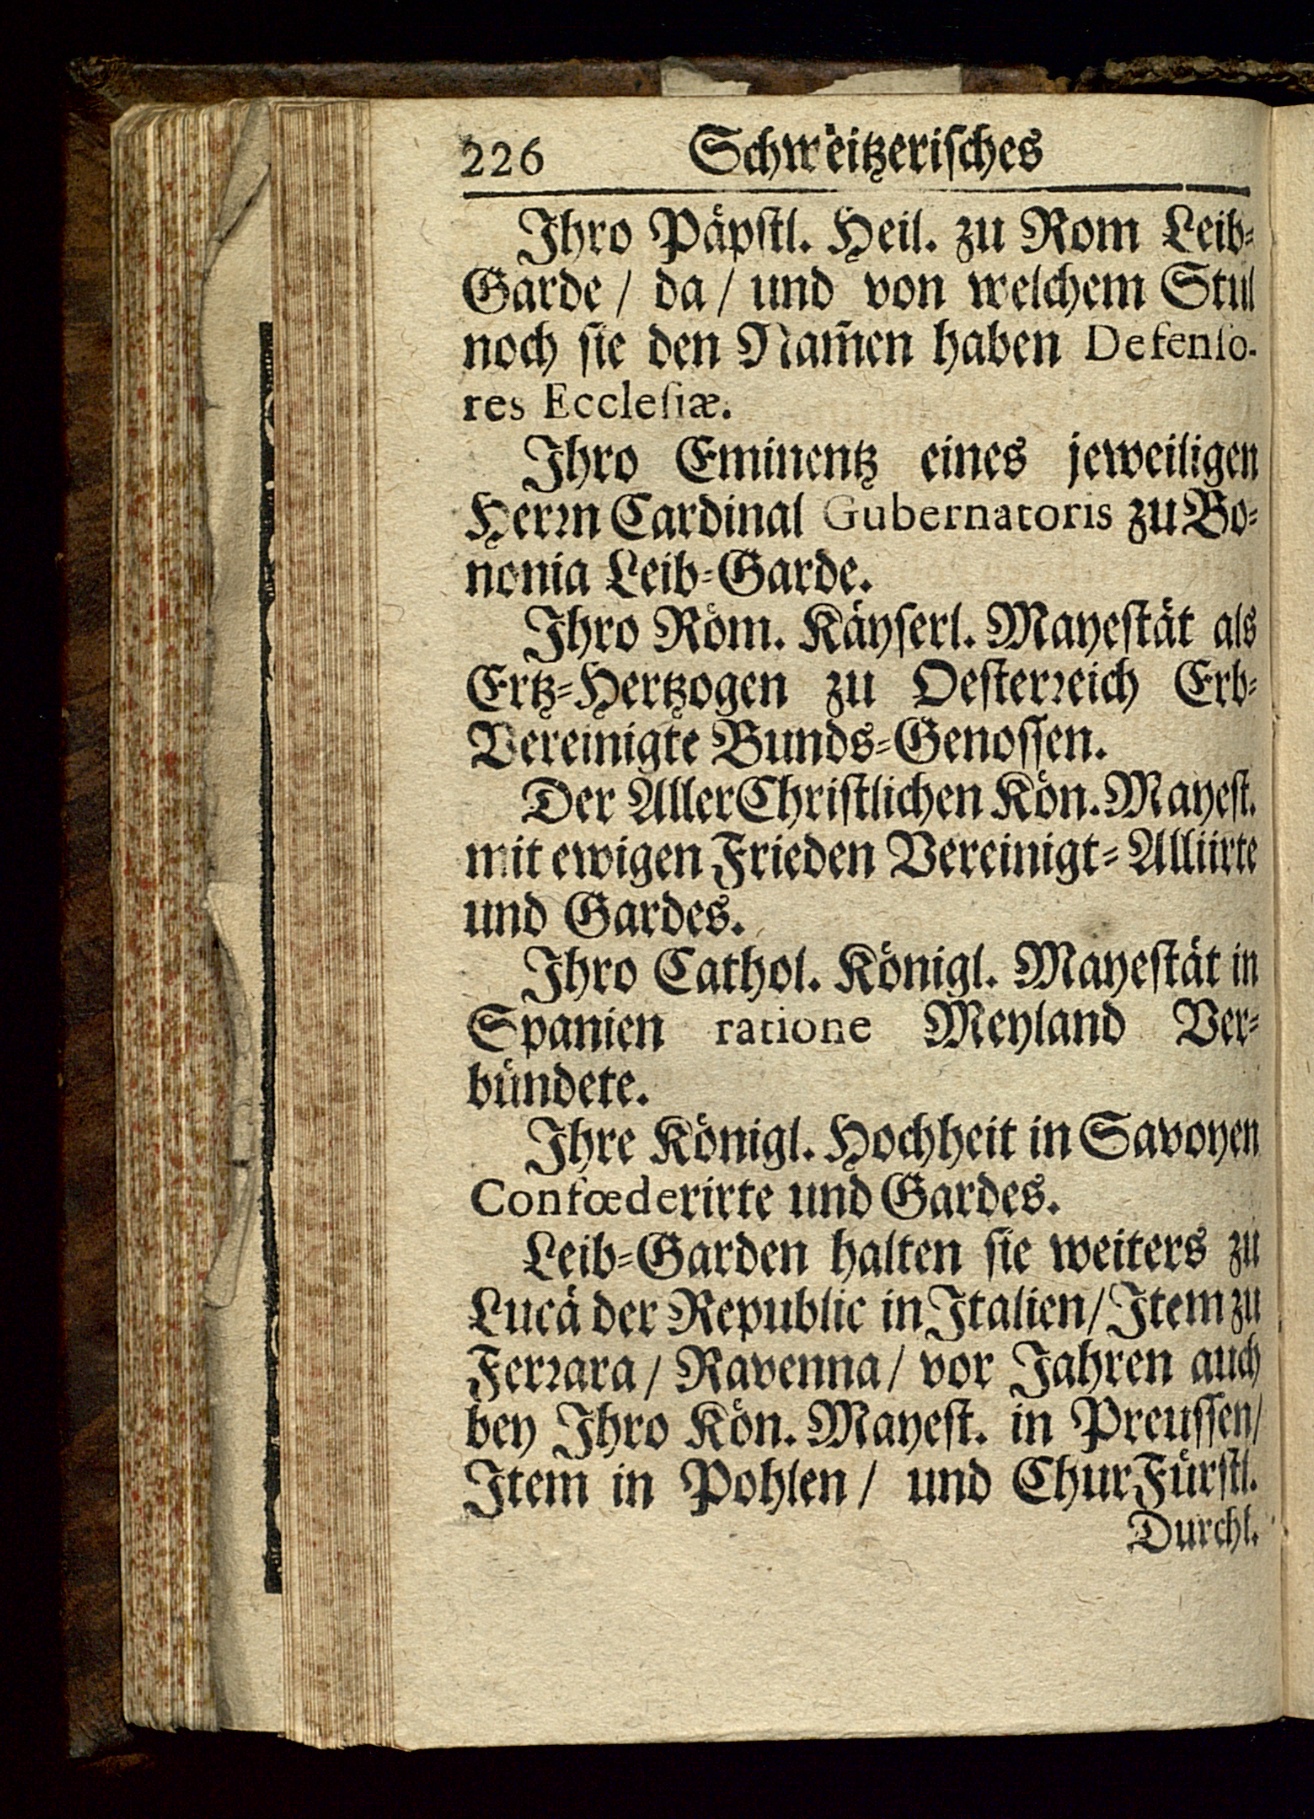 226 Schweitzerisches
Ihro Päpstl. Heil. zu Rom Leib-
Garde / da / und von welchem Stul
noch sie den Nam̄en haben Defenso-
res Ecclesiæ.
Ihro Eminentz eines jeweiligen
Herrn Cardinal Gubernatoris zu Bo-
nonia Leib-Garde.
Ihro Röm. Käyserl. Mayestät als
Ertz-Hertzogen zu Oesterreich Erb-
Vereinigte Bunds-Genossen.
Der AllerChristlichen Kön. Mayest.
mit ewigen Frieden Vereinigt-Alliirte
und Gardes.
Ihro Cathol. Königl. Mayestät in
Spanien ratione Meyland Ver-
bündete.
Ihre Königl. Hochheit in Savoyen
Confœderirte und Gardes.
Leib-Garden halten sie weiters zu
Lucä der Republic in Italien / Item zu
Ferrara / Ravenna / vor Jahren auch
bey Ihro Kön. Mayest. in Preussen /
Item in Pohlen / und ChurFürstl.
Durchl.